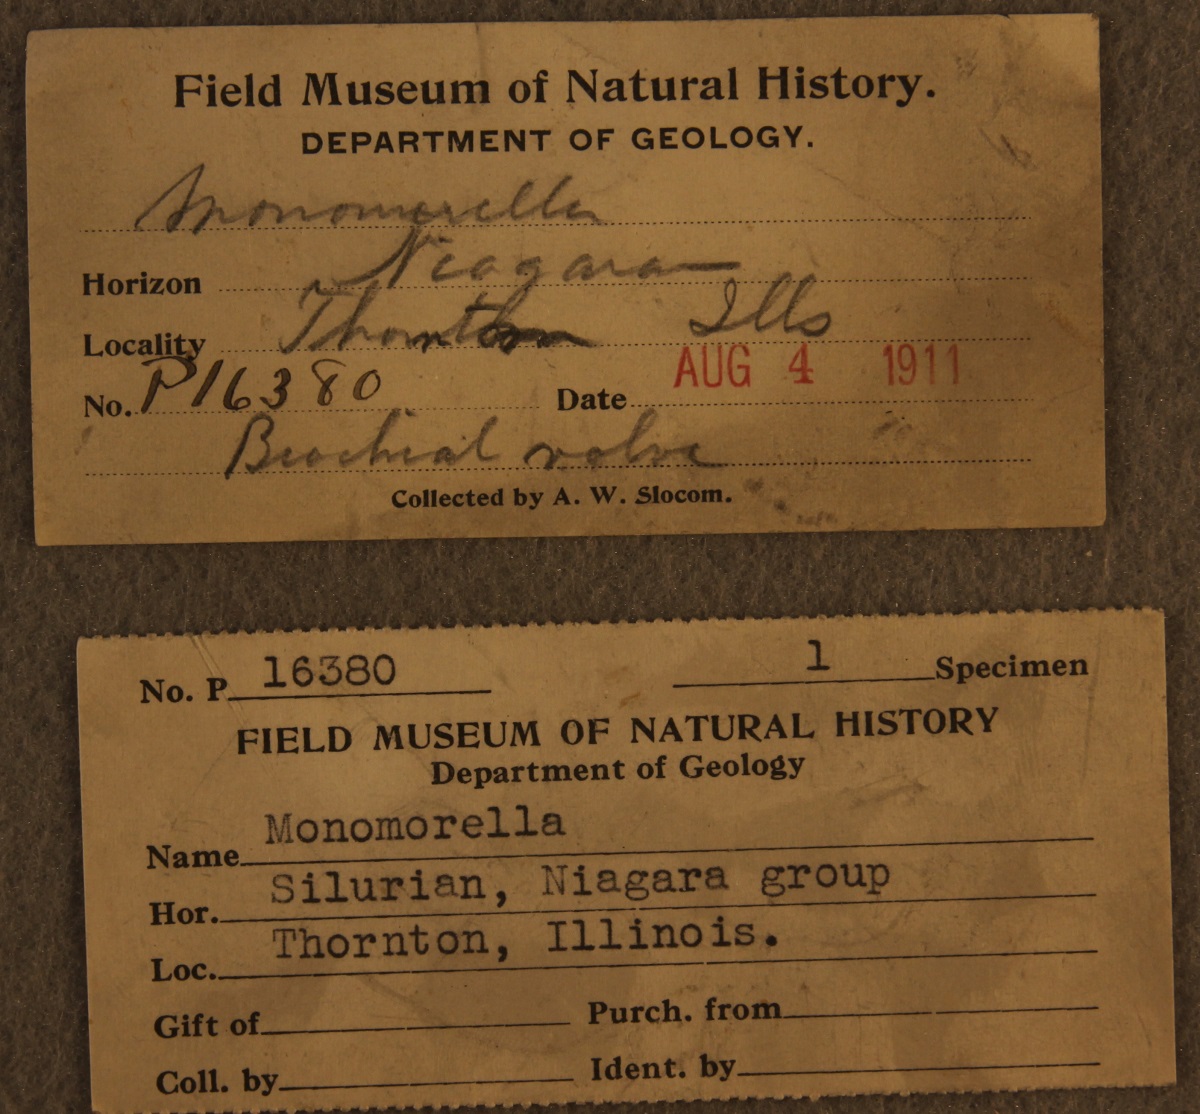 Field Museum of Natural History.
DEPARTMENT OF GEOLOGY.
Monomorella
Horizon Niagara
Locality Thornton Ills
No. P16380 Date AUG 4 1911
Brachial valve
Collected by A. W. Slocom.
No. P 16380 1 Specimen
FIELD MUSEUM OF NATURAL HISTORY
Department of Geology
Name Monomorella
Hor. Silurian, Niagara group
Loc. Thornton, Illinois.
Gift of Purch. from
Coll. by Ident. by